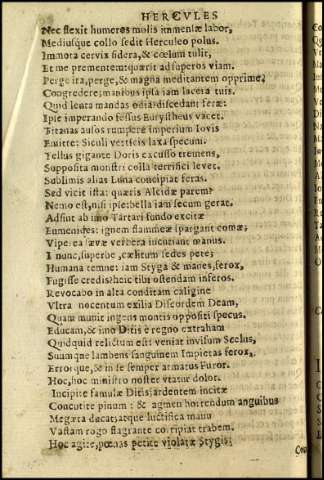 HERCVLES
Nec flexit humeros molis immensæ labor,
Mediusque collo sedit Herculeo polus.
Immota cervix sidera, & cœlum tulit,
Et me prementem: quærit ad superos viam.
Perge ira, perge, & magna meditantem opprime,
Congredere; manibus ipsa iam lacera tuis.
Quid lenta mandas odia? discedant feræ:
Ipse imperando fessus Eurystheus vacet.
Titanas ausos rumpere imperium Iovis
Emitte: Siculi verticis laxa specum.
Tellus gigante Doris excusso tremens,
Supposita monstri colla terrifici levet.
Sublimis alias Luna concipiat feras.
Sed vicit ista: quæris Alcidæ parem?
Nemo est, nisi ipse: bella iam secum gerat.
Adsint ab imo Tartari fundo excitæ
Eumenides: ignem flammeæ spargant comæ;
Viperea sævæ verbera incutiant manus.
I nunc, superbe, cælitum sedes pete;
Humana temne: iam Styga & manes, ferox,
Fugisse credis? heic tibi ostendam inferos.
Revocabo in alta conditam caligine
Vltra nocentum exilia Discordem Deam,
Quam munit ingens montis oppositi specus.
Educam, & imo Ditis è regno extraham
Quidquid relictum est: veniat invisum Scelus,
Suamque lambens sanguinem Impietas ferox,
Errorque, & in se semper armatus Furor.
Hoc, hoc ministro noster vtatur dolor.
Incipite famulæ Ditis; ardentem incitæ
Concutite pinum: & agmen horrendum anguibus
Megæra ducat, atque luctifica manu
Vastam rogo flagrante corripiat trabem.
Hoc agite, pœnas petite violatæ Stygis;